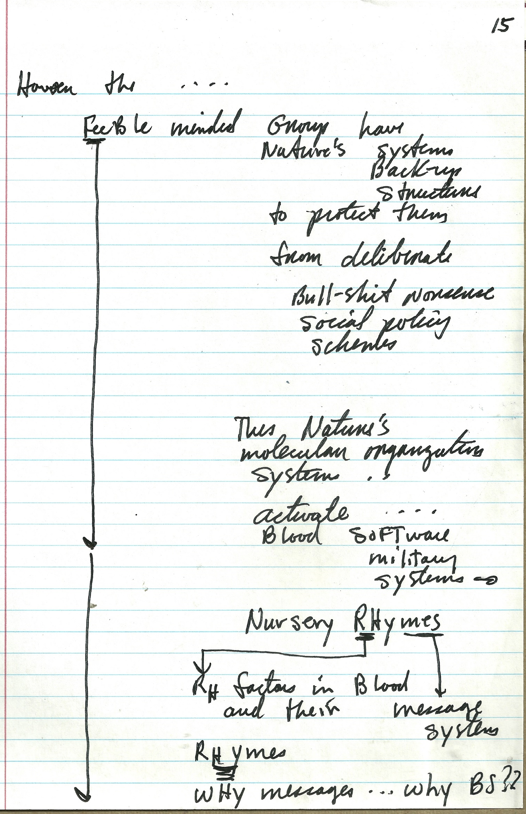 15
Howsen the ....
FeeBle minded Group have
Nature's systems
Back-up
structure
to protect them
from deliberate
Bull-shit nonsense
social policy
schemes
Thus Nature's
molecular organization
systems ..
activate ....
Blood SOFTware
military
systems
Nursery RHymes
RH factors in Blood
and their message
system
RHymes
WHy messages ... why BS??